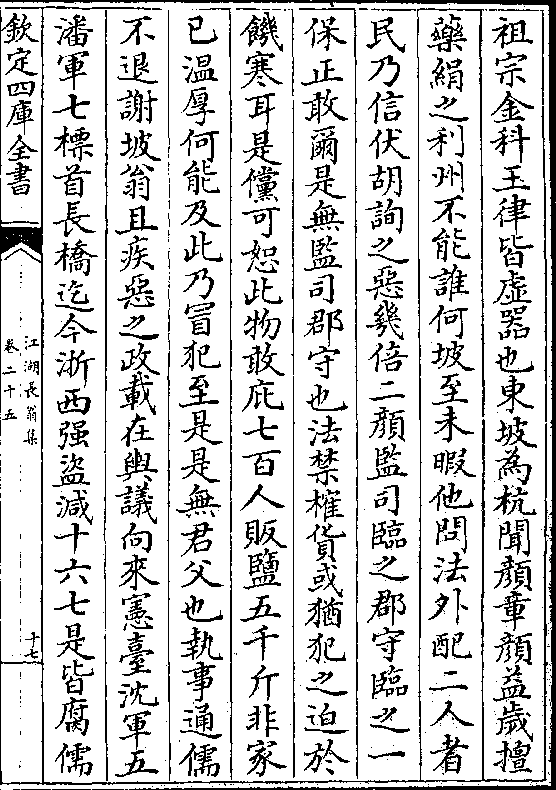 祖宗金科玉律皆虛器也東坡為杭聞顔章顔益歲擅
藥絹之利州不能誰何坡至未暇他問法外配二人者
民乃信伏胡詢之惡幾倍二顔監司臨之郡守臨之一
保正敢爾是無監司郡守也法禁榷貨或猶犯之迫於
饑寒耳是儻可恕此物敢庇七百人販鹽五千斤非家
已温厚何能及此乃冒犯至是是無君父也執事通儒
不退謝坡翁且疾惡之政載在輿議向來憲臺沈軍五
潘軍七標首長橋迄今浙西强盜減十六七是皆腐儒
欽定四庫全書
江湖長翁集
卷二十五
十七